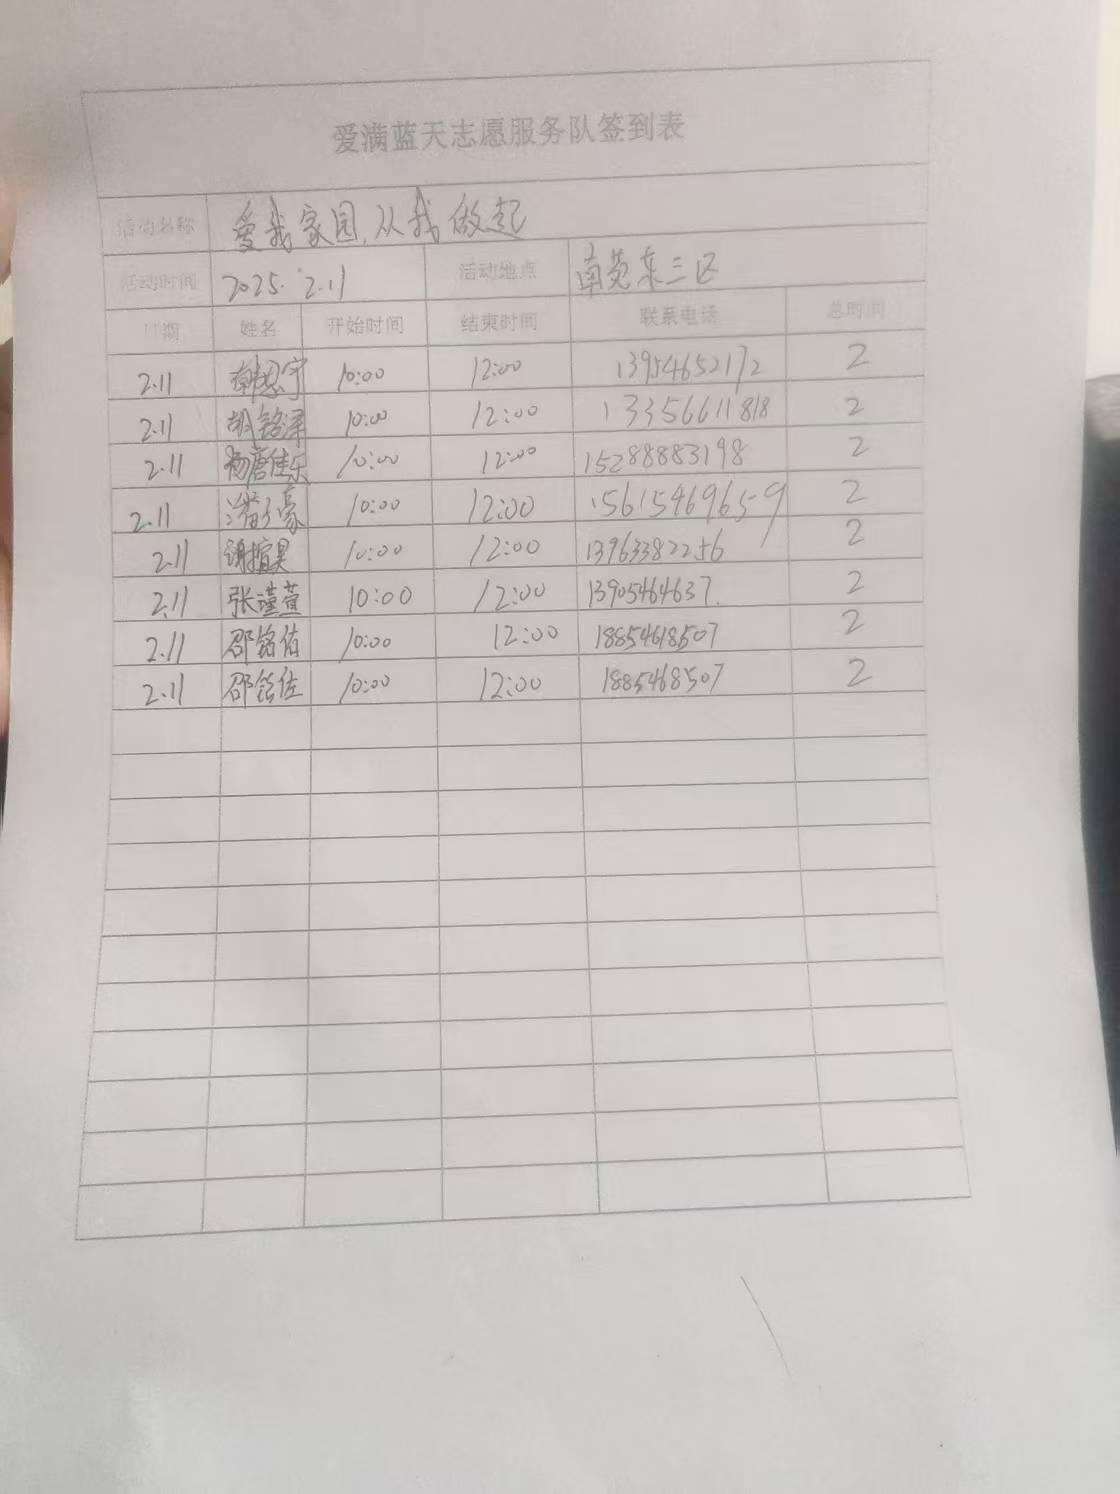 爱满蓝天志愿服务队签到表
活动名称 爱我家园,从我做起
活动时间 2025.2.11 活动地点 南苑东三区
日期 姓名 开始时间 结束时间 联系电话 总时间
2.11 思宇 10:00 12:00 13954652172 2
2.11 胡铭泽 10:00 12:00 13356611818 2
2.11 杨唐佳乐 10:00 12:00 15288883198 2
2.11 潘子豪 10:00 12:00 15615469659 2
2.11 谢宜昊 10:00 12:00 13963382256 2
2.11 张瑾萱 10:00 12:00 13905464637. 2
2.11 邵铭佑 10:00 12:00 18854618507 2
2.11 邵铭佐 10:00 12:00 1885468507 2